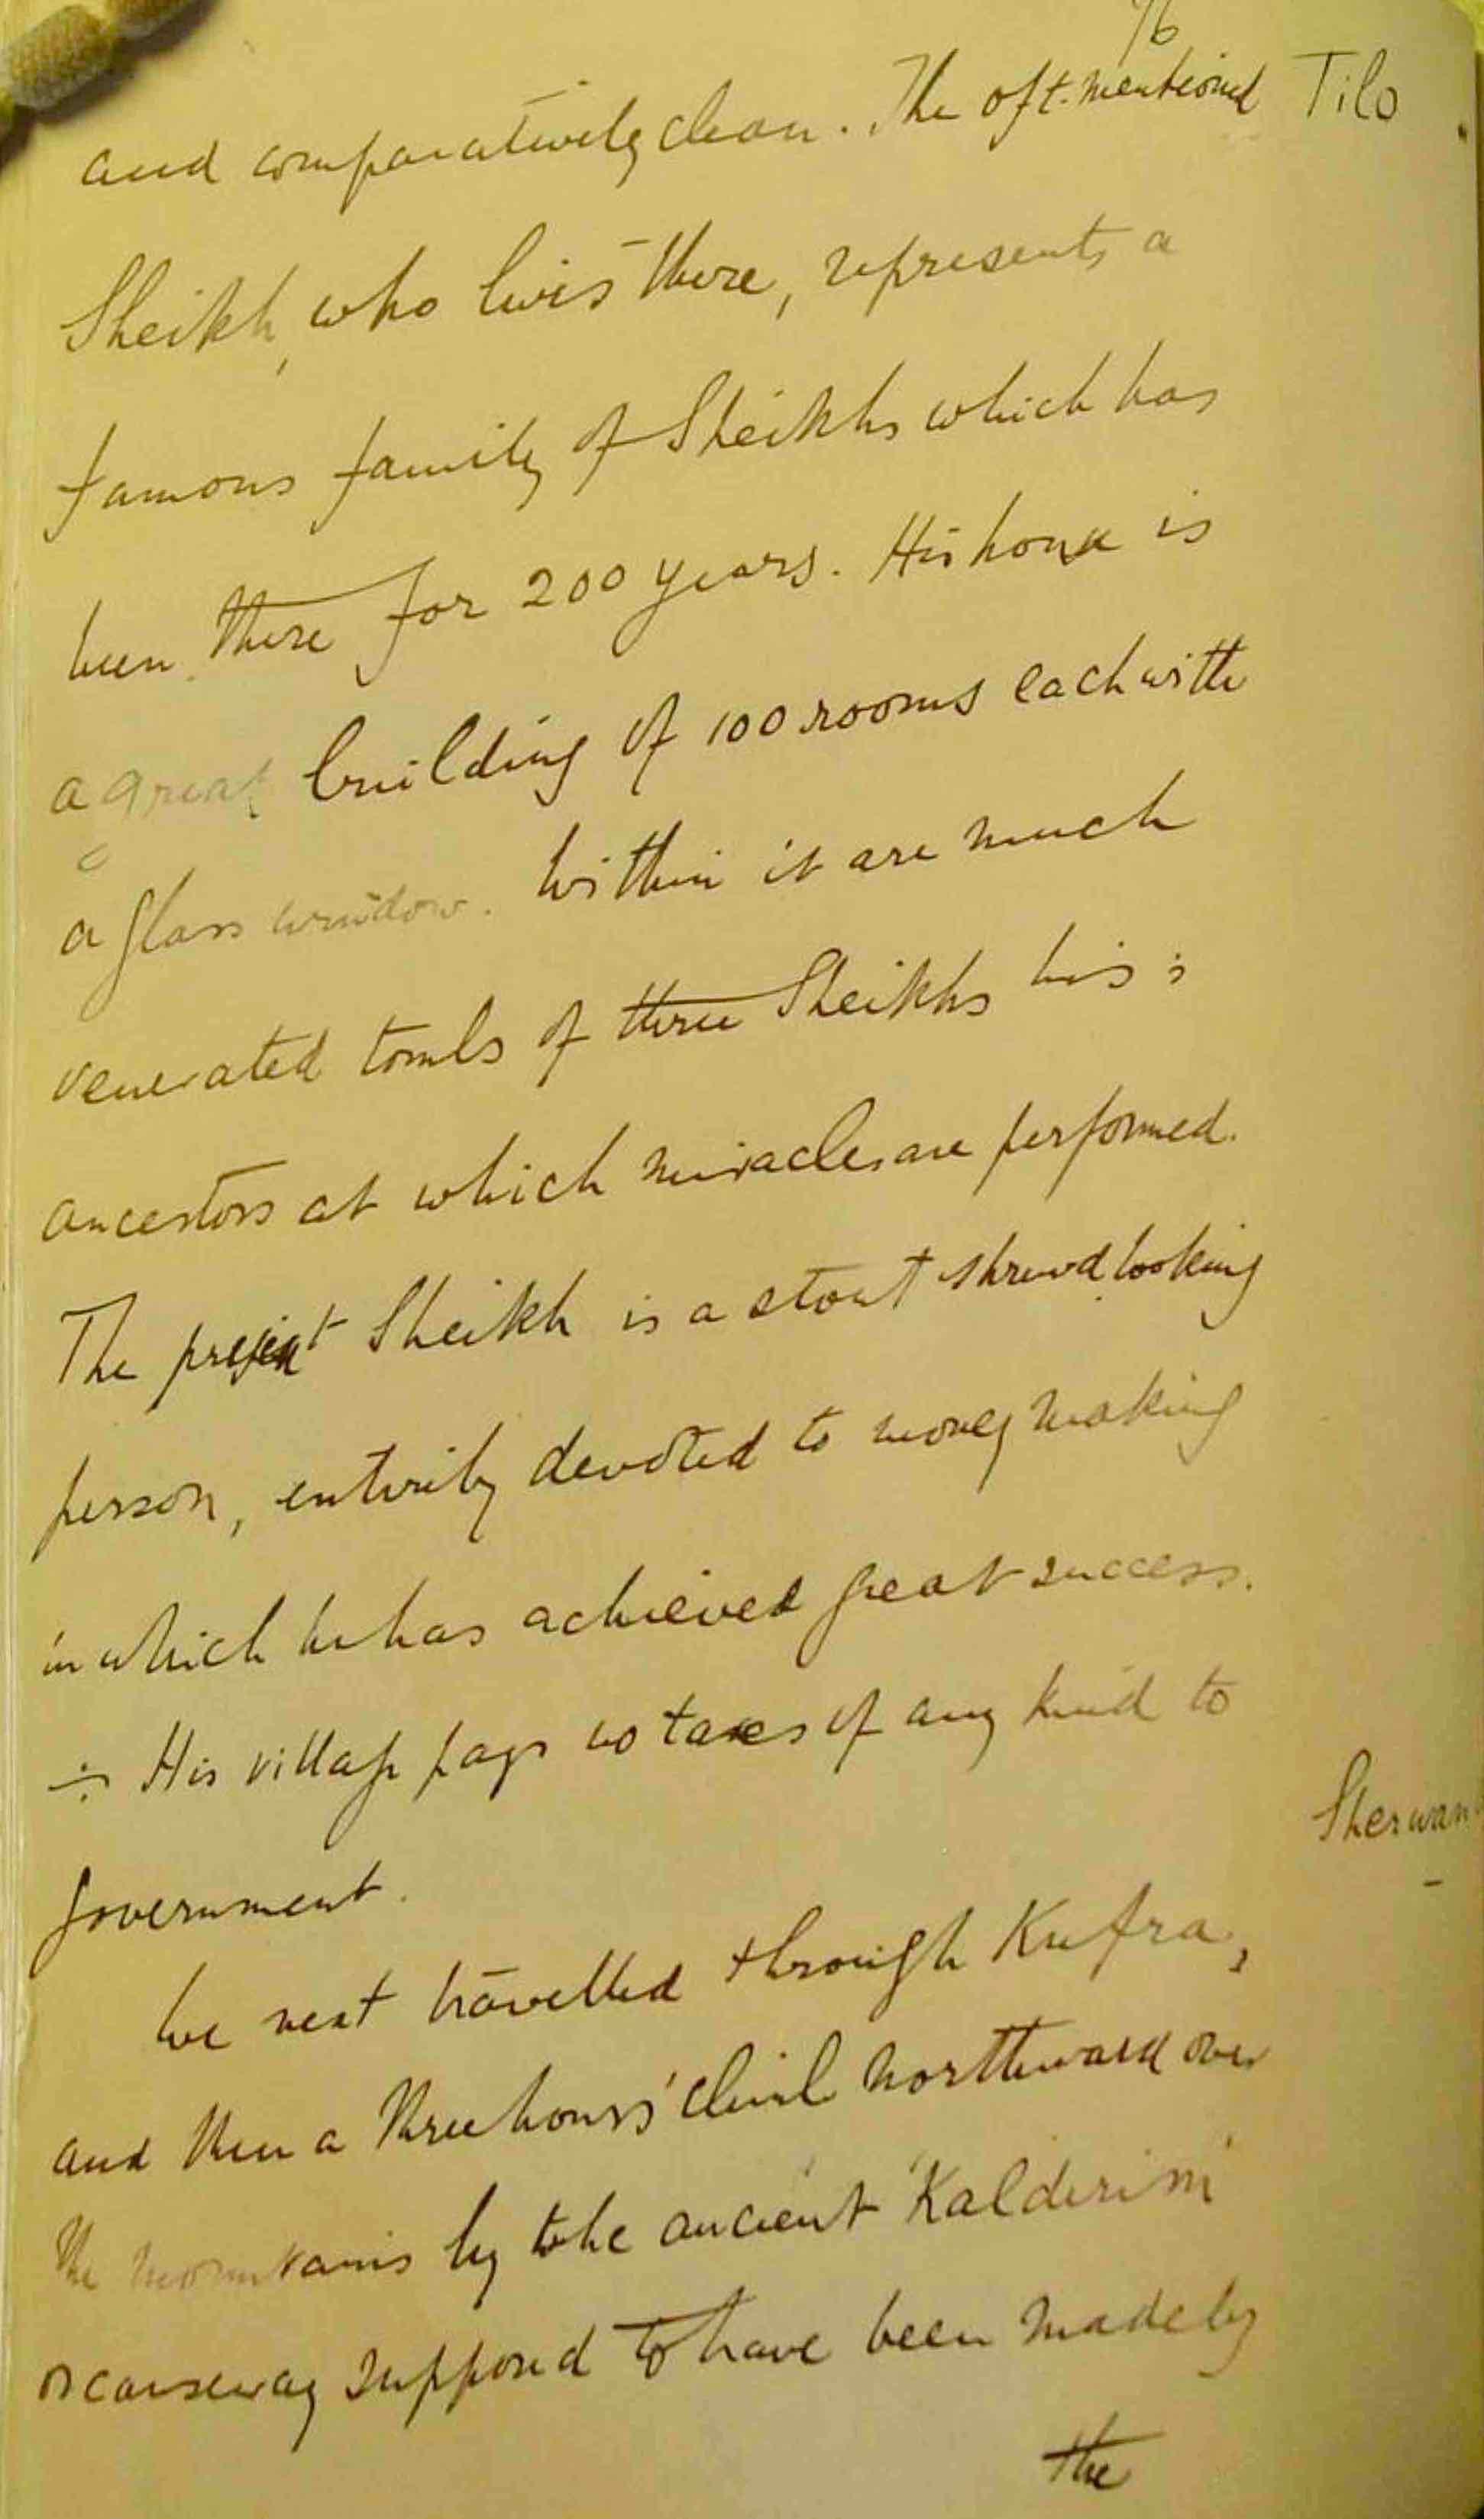 76
and comparatively clean. The oft-mentioned Tilo
Sheikh, who lives there, represents a
famous family of Sheikhs which has
been there for 200 years. His house is
a great building of 100 rooms each with
a glass window. Within it are much
venerated tombs of three Sheikhs his
ancestors at which miracles are performed.
The present Sheikh is a stout shrewd looking
person, entirely devoted to money making
in which he has achieved great success.
÷ His village pays no taxes of any kind to
Sherwan
government.
We next travelled through Kufra,
and then a three hours' climb northward over
the mountains by the ancient 'Kalderim'
or causeway supposed to have been made by
the